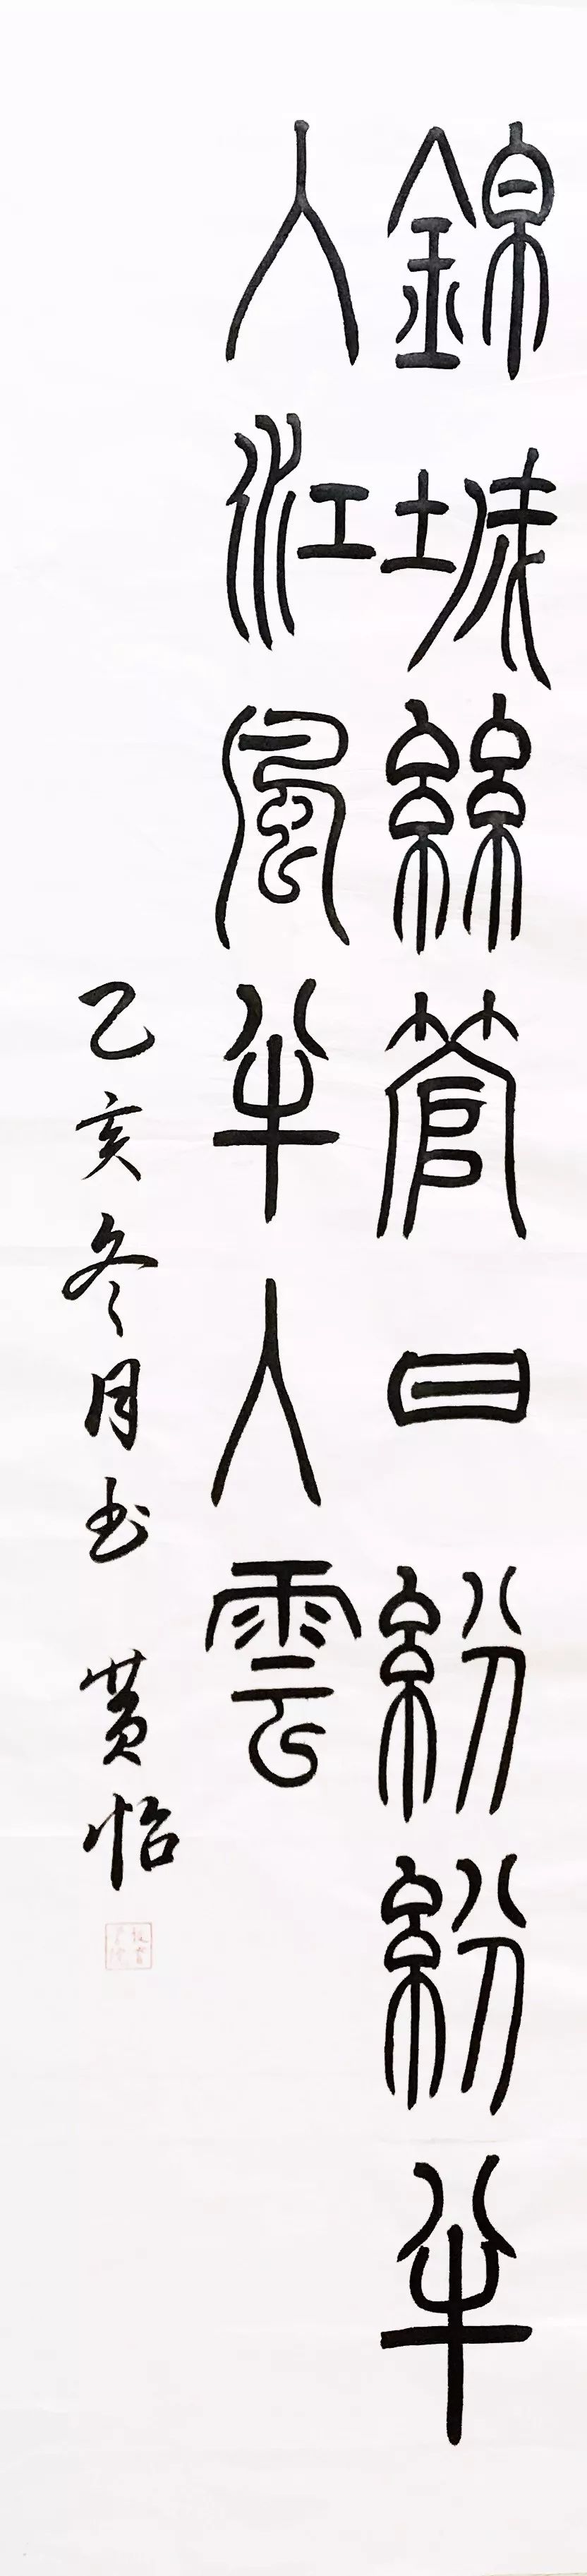 錦城絲管日紛紛半
入江風半入雲
乙亥冬月书 黄怡